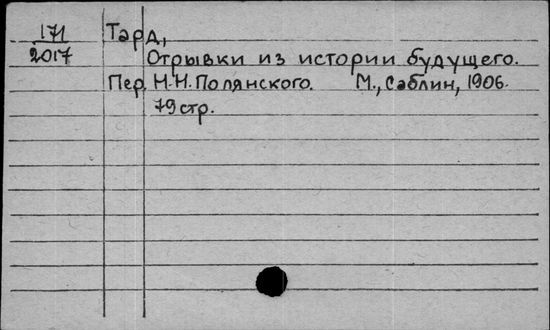 171 Тард,
2017 Отрывки из истории будущего.
Пер. Н.Н.Полянского. М., Саблин, 1906.
79 стр.